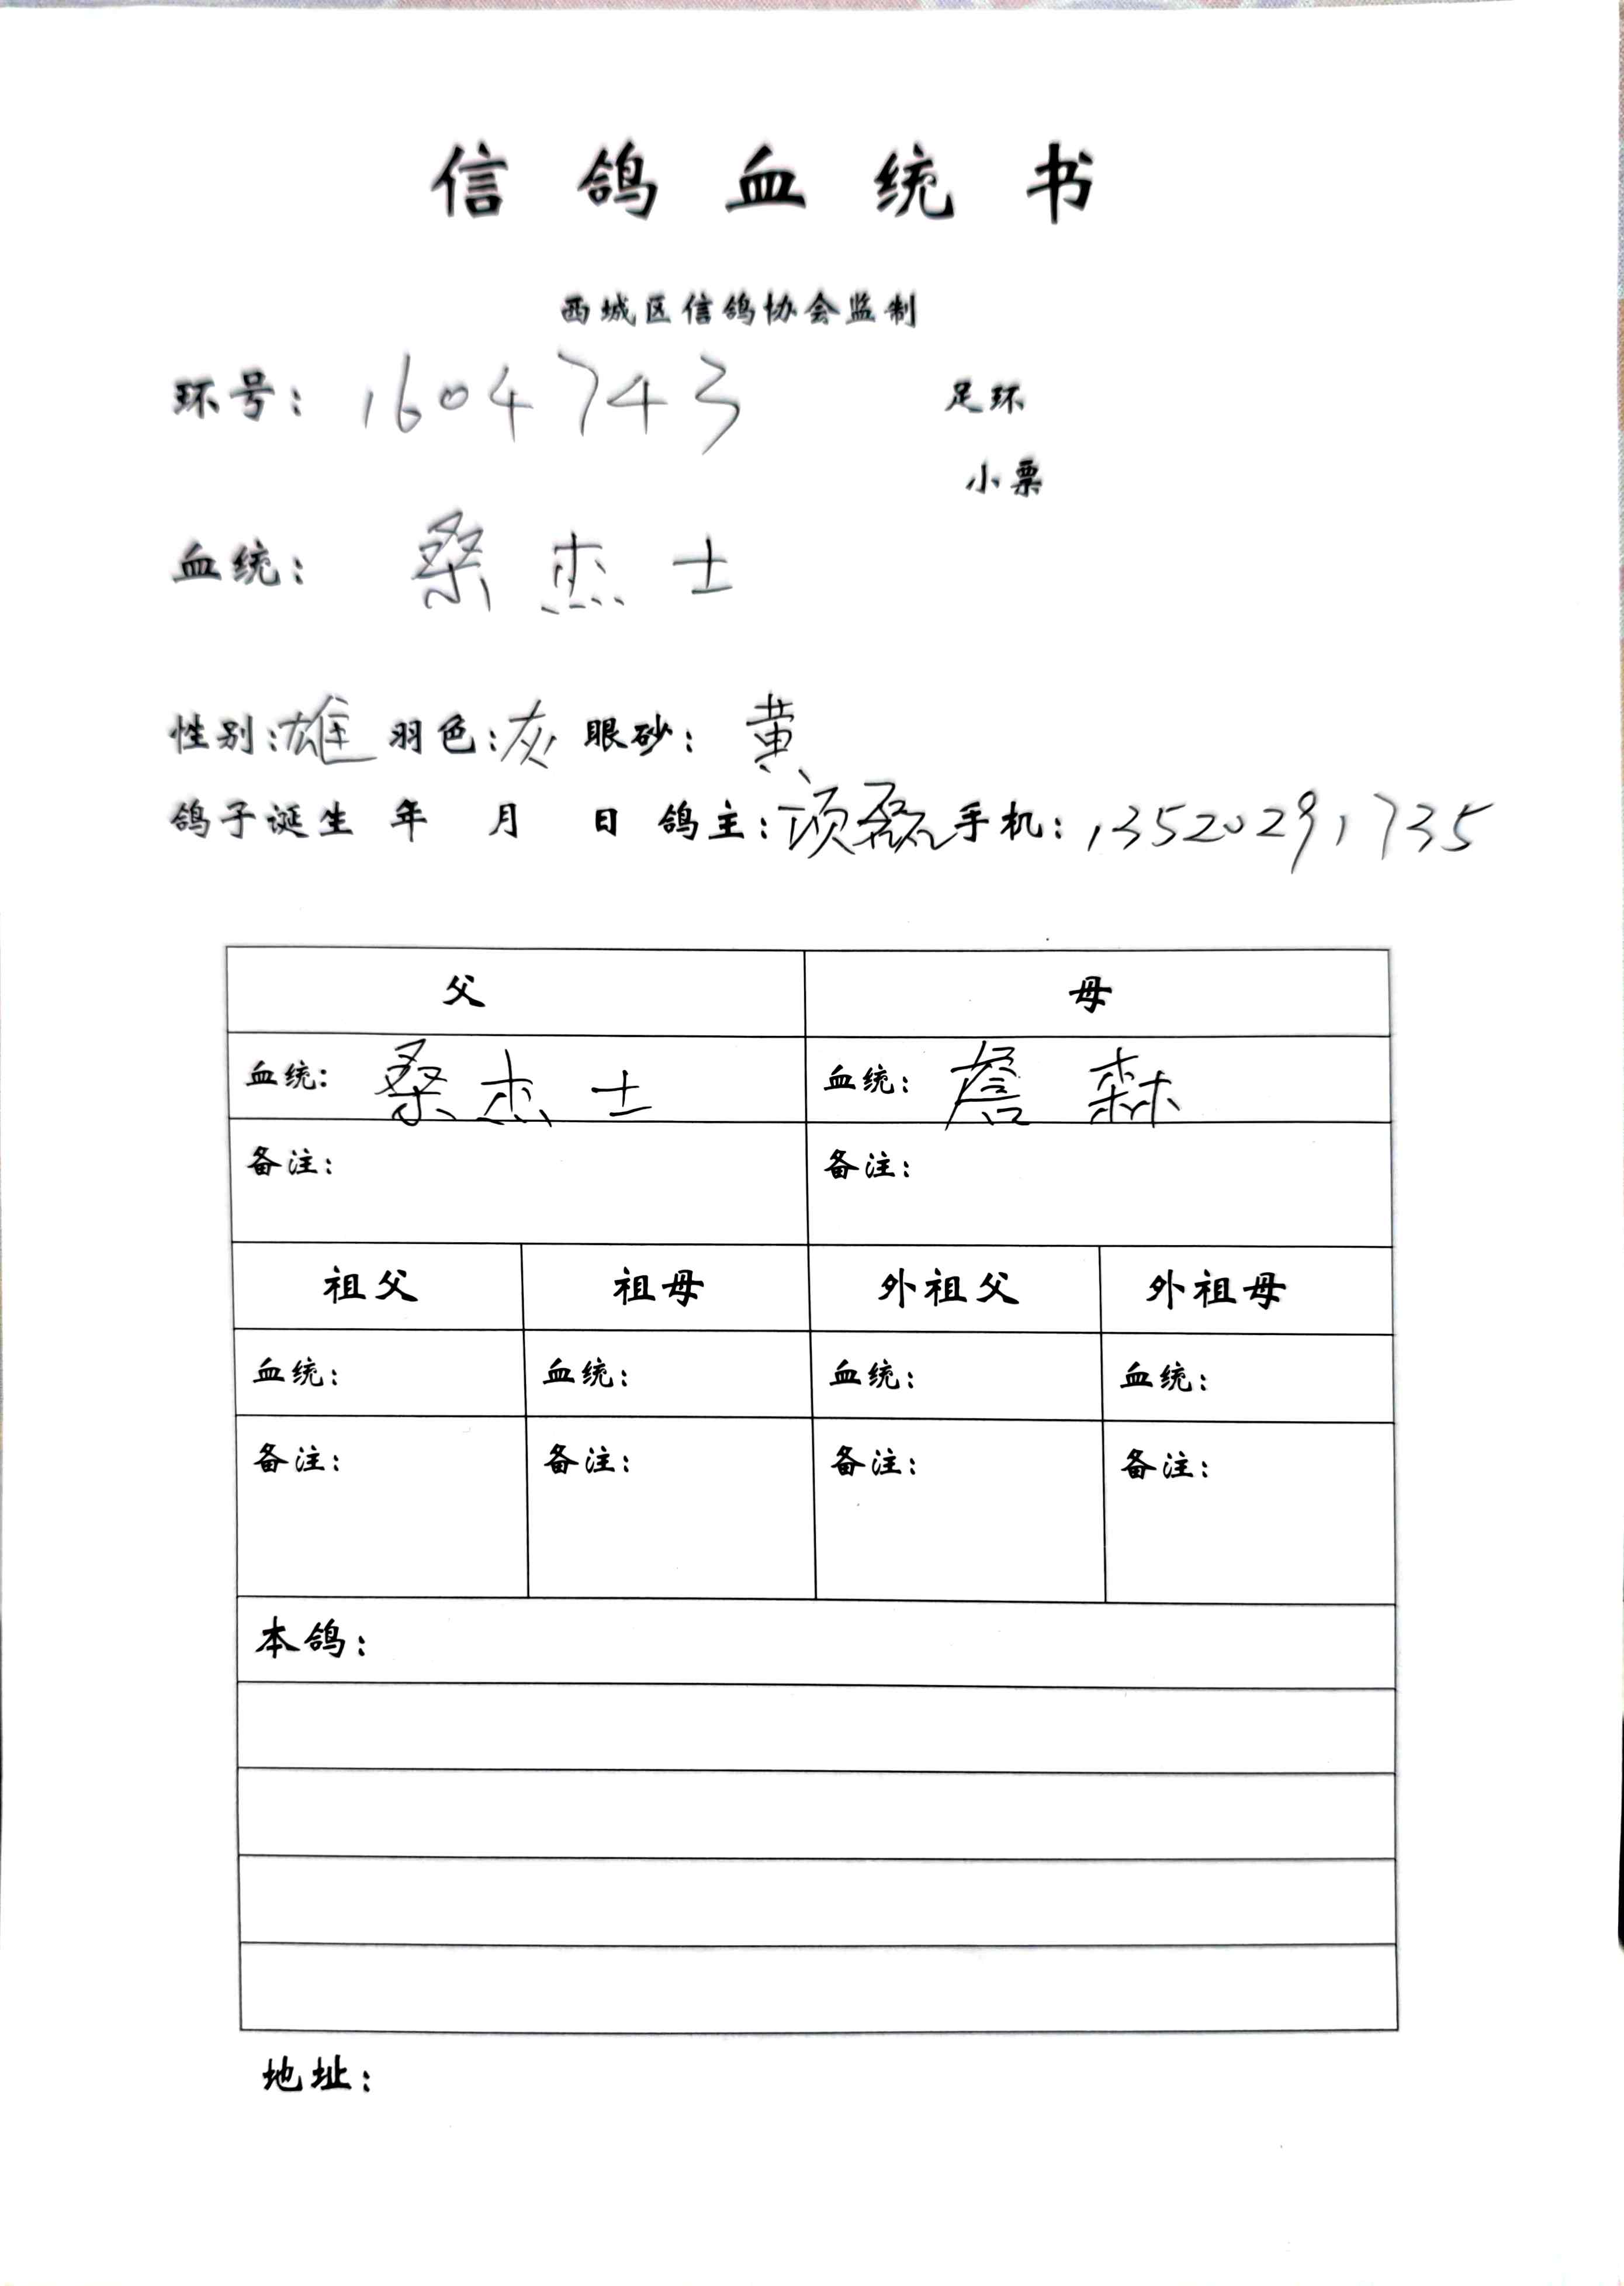 信鸽血统书
西城区信鸽协会监制
环号：1604743 足环
小票
血统：桑杰士
性别：雄 羽色：灰 眼砂：黄
鸽子诞生 年 月 日 鸽主：项磊 手机：13520291735
父 母
血统：桑杰士 血统：詹森
备注： 备注：
祖父 祖母 外祖父 外祖母
血统： 血统： 血统： 血统：
备注： 备注： 备注： 备注：
本鸽：
地址：